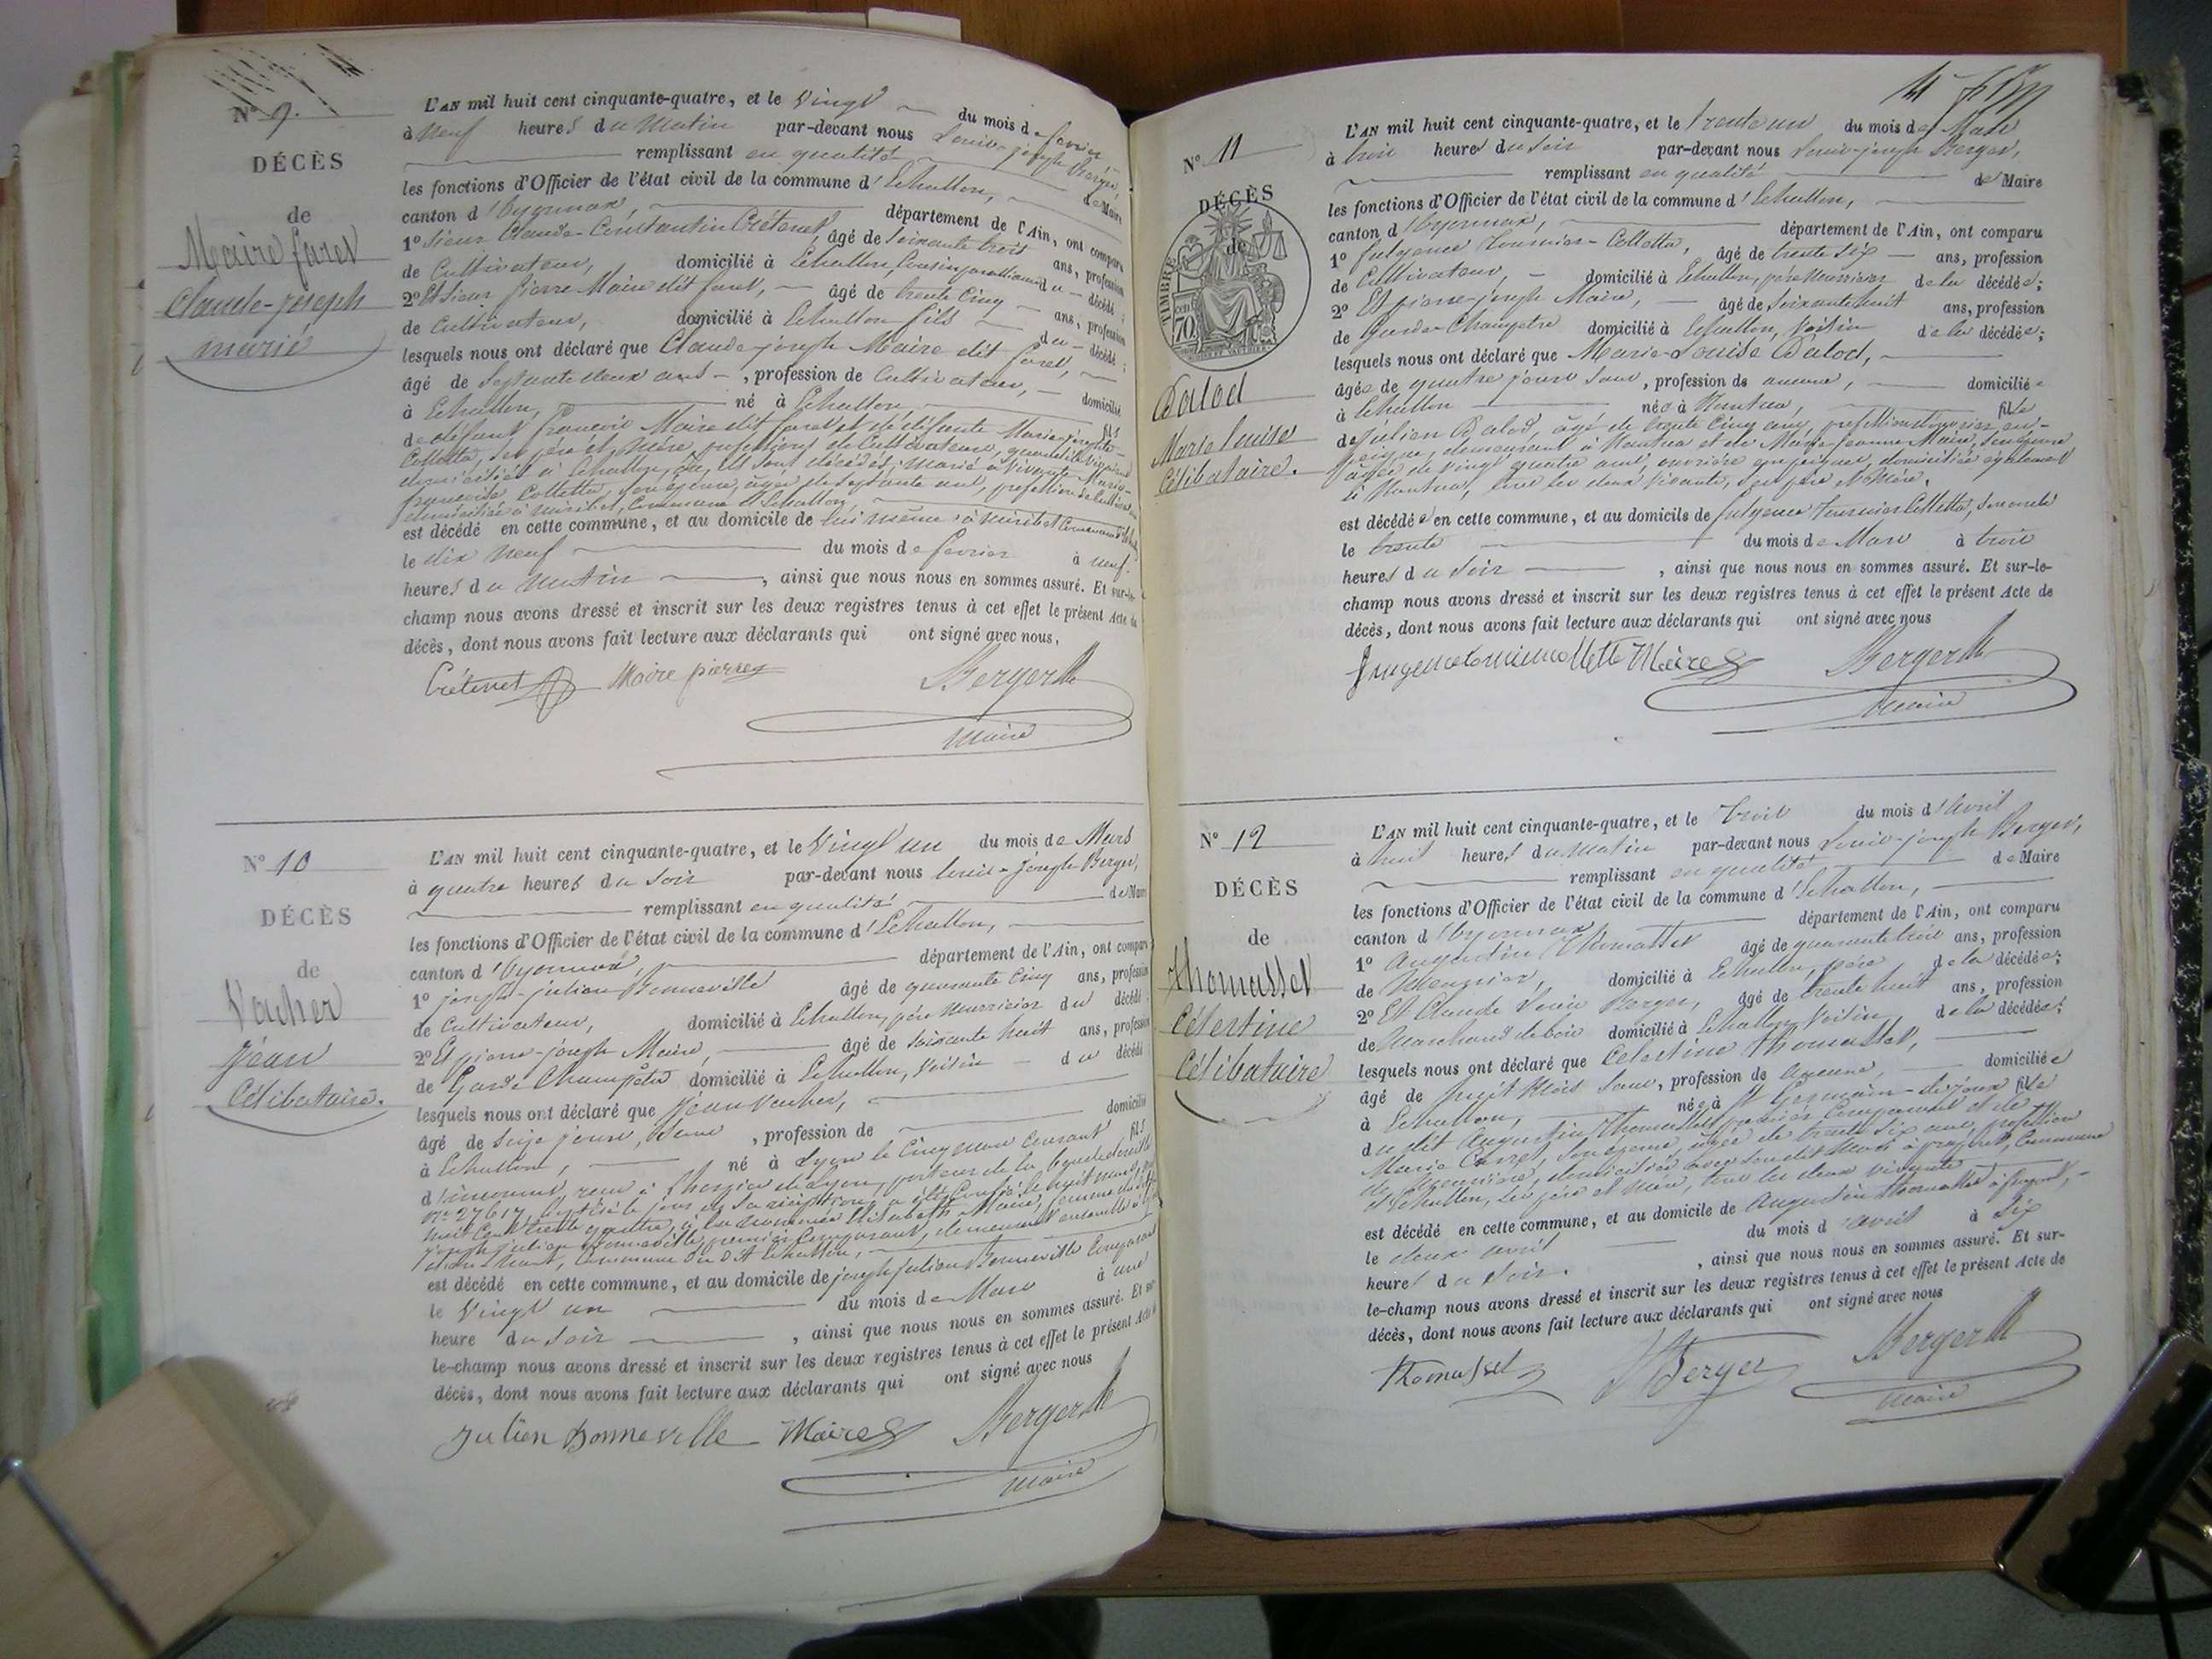 N° 9.
DÉCÈS
de
Maire faret
Claude-joseph
marié
L'AN mil huit cent cinquante-quatre, et le Vingt du mois de fevrier
à Neuf heures du Matin par-devant nous Louis-joseph Berger,
remplissant en qualité de Maire
les fonctions d'Officier de l'état civil de la commune d'Echallon,
canton d'Oyonnax, département de l'Ain, ont comparu
1° Sieur Claude-Constantin Crétenet, âgé de Soixante trois ans, profession
de Cultivateur, domicilié à Echallon, Cousin du décédé;
2° Et Sieur pierre Maire dit faret, âgé de trente Cinq ans, profession
de Cultivateur, domicilié à Echallon fils du décédé;
lesquels nous ont déclaré que Claude-joseph Maire dit faret,
âgé de Septante deux ans, profession de Cultivateur, domicilié
à Echallon, né à Echallon fils
de défunt françois Maire dit faret et de défunte Marie-josephte
Colletta, ses père et mère, professions de Cultivateur,
domiciliés à Echallon, où ils sont décédés, marié à vivante Marie-
françoise Colletta, son épouse, âgée de Septante ans, profession de Cultivatrice
domiciliée à miribel, Commune d'Echallon,
est décédé en cette commune, et au domicile de lui même à miribel Commune d'Echallon
le dix neuf du mois de fevrier à neuf
heures du matin, ainsi que nous nous en sommes assuré. Et sur-le-
champ nous avons dressé et inscrit sur les deux registres tenus à cet effet le présent Acte de
décès, dont nous avons fait lecture aux déclarants qui ont signé avec nous,
Crétenet Maire pierre Berger
Maire
N° 10
DÉCÈS
de
Vacher
Jéan
Célibataire.
L'AN mil huit cent cinquante-quatre, et le Vingt un du mois de Mars
à quatre heures du Soir par-devant nous Louis-joseph Berger,
remplissant en qualité de Maire
les fonctions d'Officier de l'état civil de la commune d'Echallon,
canton d'Oyonnax, département de l'Ain, ont comparu
1° joseph-julien Bonneville âgé de quarante Cinq ans, profession
de Cultivateur, domicilié à Echallon, père nourricier du décédé
2° Et pierre-joseph Maire, âgé de soixante huit ans, profession
de Garde Champêtre domicilié à Echallon, Voisin du décédé
lesquels nous ont déclaré que Jéan Vacher,
âgé de Seize jours, Sans, profession de domicilié
à Echallon, né à Lyon le Cinq mars Courant fils
d'inconnus, reçu à l'hospice de Lyon, porteur de la boucle d'oreille
n° 27617, le jour de sa réception, a été Confié le huit mars mil
huit Cent Cinquante quatre, à la nommée Elisabeth Maire, femme du dit
joseph julien Bonneville, premier Comparant, demeurant ensemble à
Commune du Dit Echallon,
est décédé en cette commune, et au domicile de joseph julien Bonneville Comparant
le Vingt un du mois de Mars à une
heure du Soir, ainsi que nous nous en sommes assuré. Et sur-
le-champ nous avons dressé et inscrit sur les deux registres tenus à cet effet le présent Acte de
décès, dont nous avons fait lecture aux déclarants qui ont signé avec nous
Julien Bonneville Maire Berger
Maire
N° 11
DÉCÈS
de
TIMBRE
70
Dalod
Marie louise
Célibataire.
L'AN mil huit cent cinquante-quatre, et le trente un du mois de Mars
à trois heures du Soir par-devant nous Louis-joseph Berger,
remplissant en qualité de Maire
les fonctions d'Officier de l'état civil de la commune d'Echallon,
canton d'Oyonnax, département de l'Ain, ont comparu
1° fulgence Tournier-Colletta, âgé de trente Six ans, profession
de Cultivateur, domicilié à Echallon, père Nourricier de la décédée;
2° Et pierre-joseph Maire, âgé de Soixante huit ans, profession
de Garde-Champetre domicilié à Echallon, Voisin de la décédée;
lesquels nous ont déclaré que Marie-Louise Dalod,
âgée de quatre jours Sans, profession de aucune, domiciliée
à Echallon née à Nantua, fille
de julien Dalod, âgé de trente Cinq ans, profession d'ouvrier en-
peigne, demeurant à Nantua et de Marie-Jeanne Maire, Son épouse
âgée de Vingt quatre ans, ouvrière en peigne, domiciliée également
à Nantua, tous les deux Vivants, Ses père et Mère.
est décédée en cette commune, et au domicile de fulgence Tournier Colletta, Son oncle
le trente du mois de Mars à trois
heures du Soir, ainsi que nous nous en sommes assuré. Et sur-le-
champ nous avons dressé et inscrit sur les deux registres tenus à cet effet le présent Acte de
décès, dont nous avons fait lecture aux déclarants qui ont signé avec nous
Maire Berger
Maire
N° 12
DÉCÈS
de
Thomasset
Célestine
Célibataire
L'AN mil huit cent cinquante-quatre, et le trois du mois d'Avril
à huit heures du Matin par-devant nous Louis-joseph Berger,
remplissant en qualité de Maire
les fonctions d'Officier de l'état civil de la commune d'Echallon,
canton d'Oyonnax département de l'Ain, ont comparu
1° Augustin Thomasset âgé de quarante trois ans, profession
de Meunier, domicilié à Echallon, père de la décédée;
2° Et Claude Louis Berger, âgé de trente huit ans, profession
de Marchand de bois domicilié à Echallon Voisin de la décédée;
lesquels nous ont déclaré que Célestine Thomasset,
âgé de huit Mois Sans, profession de Aucune, domiciliée
à Echallon, née à St Germain-de-joux fille
du dit Augustin Thomasset premier Comparant et de
Marie Carret, Son épouse, âgée de trente Six ans, profession
de Meunière, domiciliée avec Son dit Mari à Commune
d'Echallon, Ses père et mère, tous les deux vivants
est décédé en cette commune, et au domicile de Augustin Thomasset
le deux avril du mois d'avril à Six
heures du Soir., ainsi que nous nous en sommes assuré. Et sur-
le-champ nous avons dressé et inscrit sur les deux registres tenus à cet effet le présent Acte de
décès, dont nous avons fait lecture aux déclarants qui ont signé avec nous
Thomasset Berger Berger
Maire